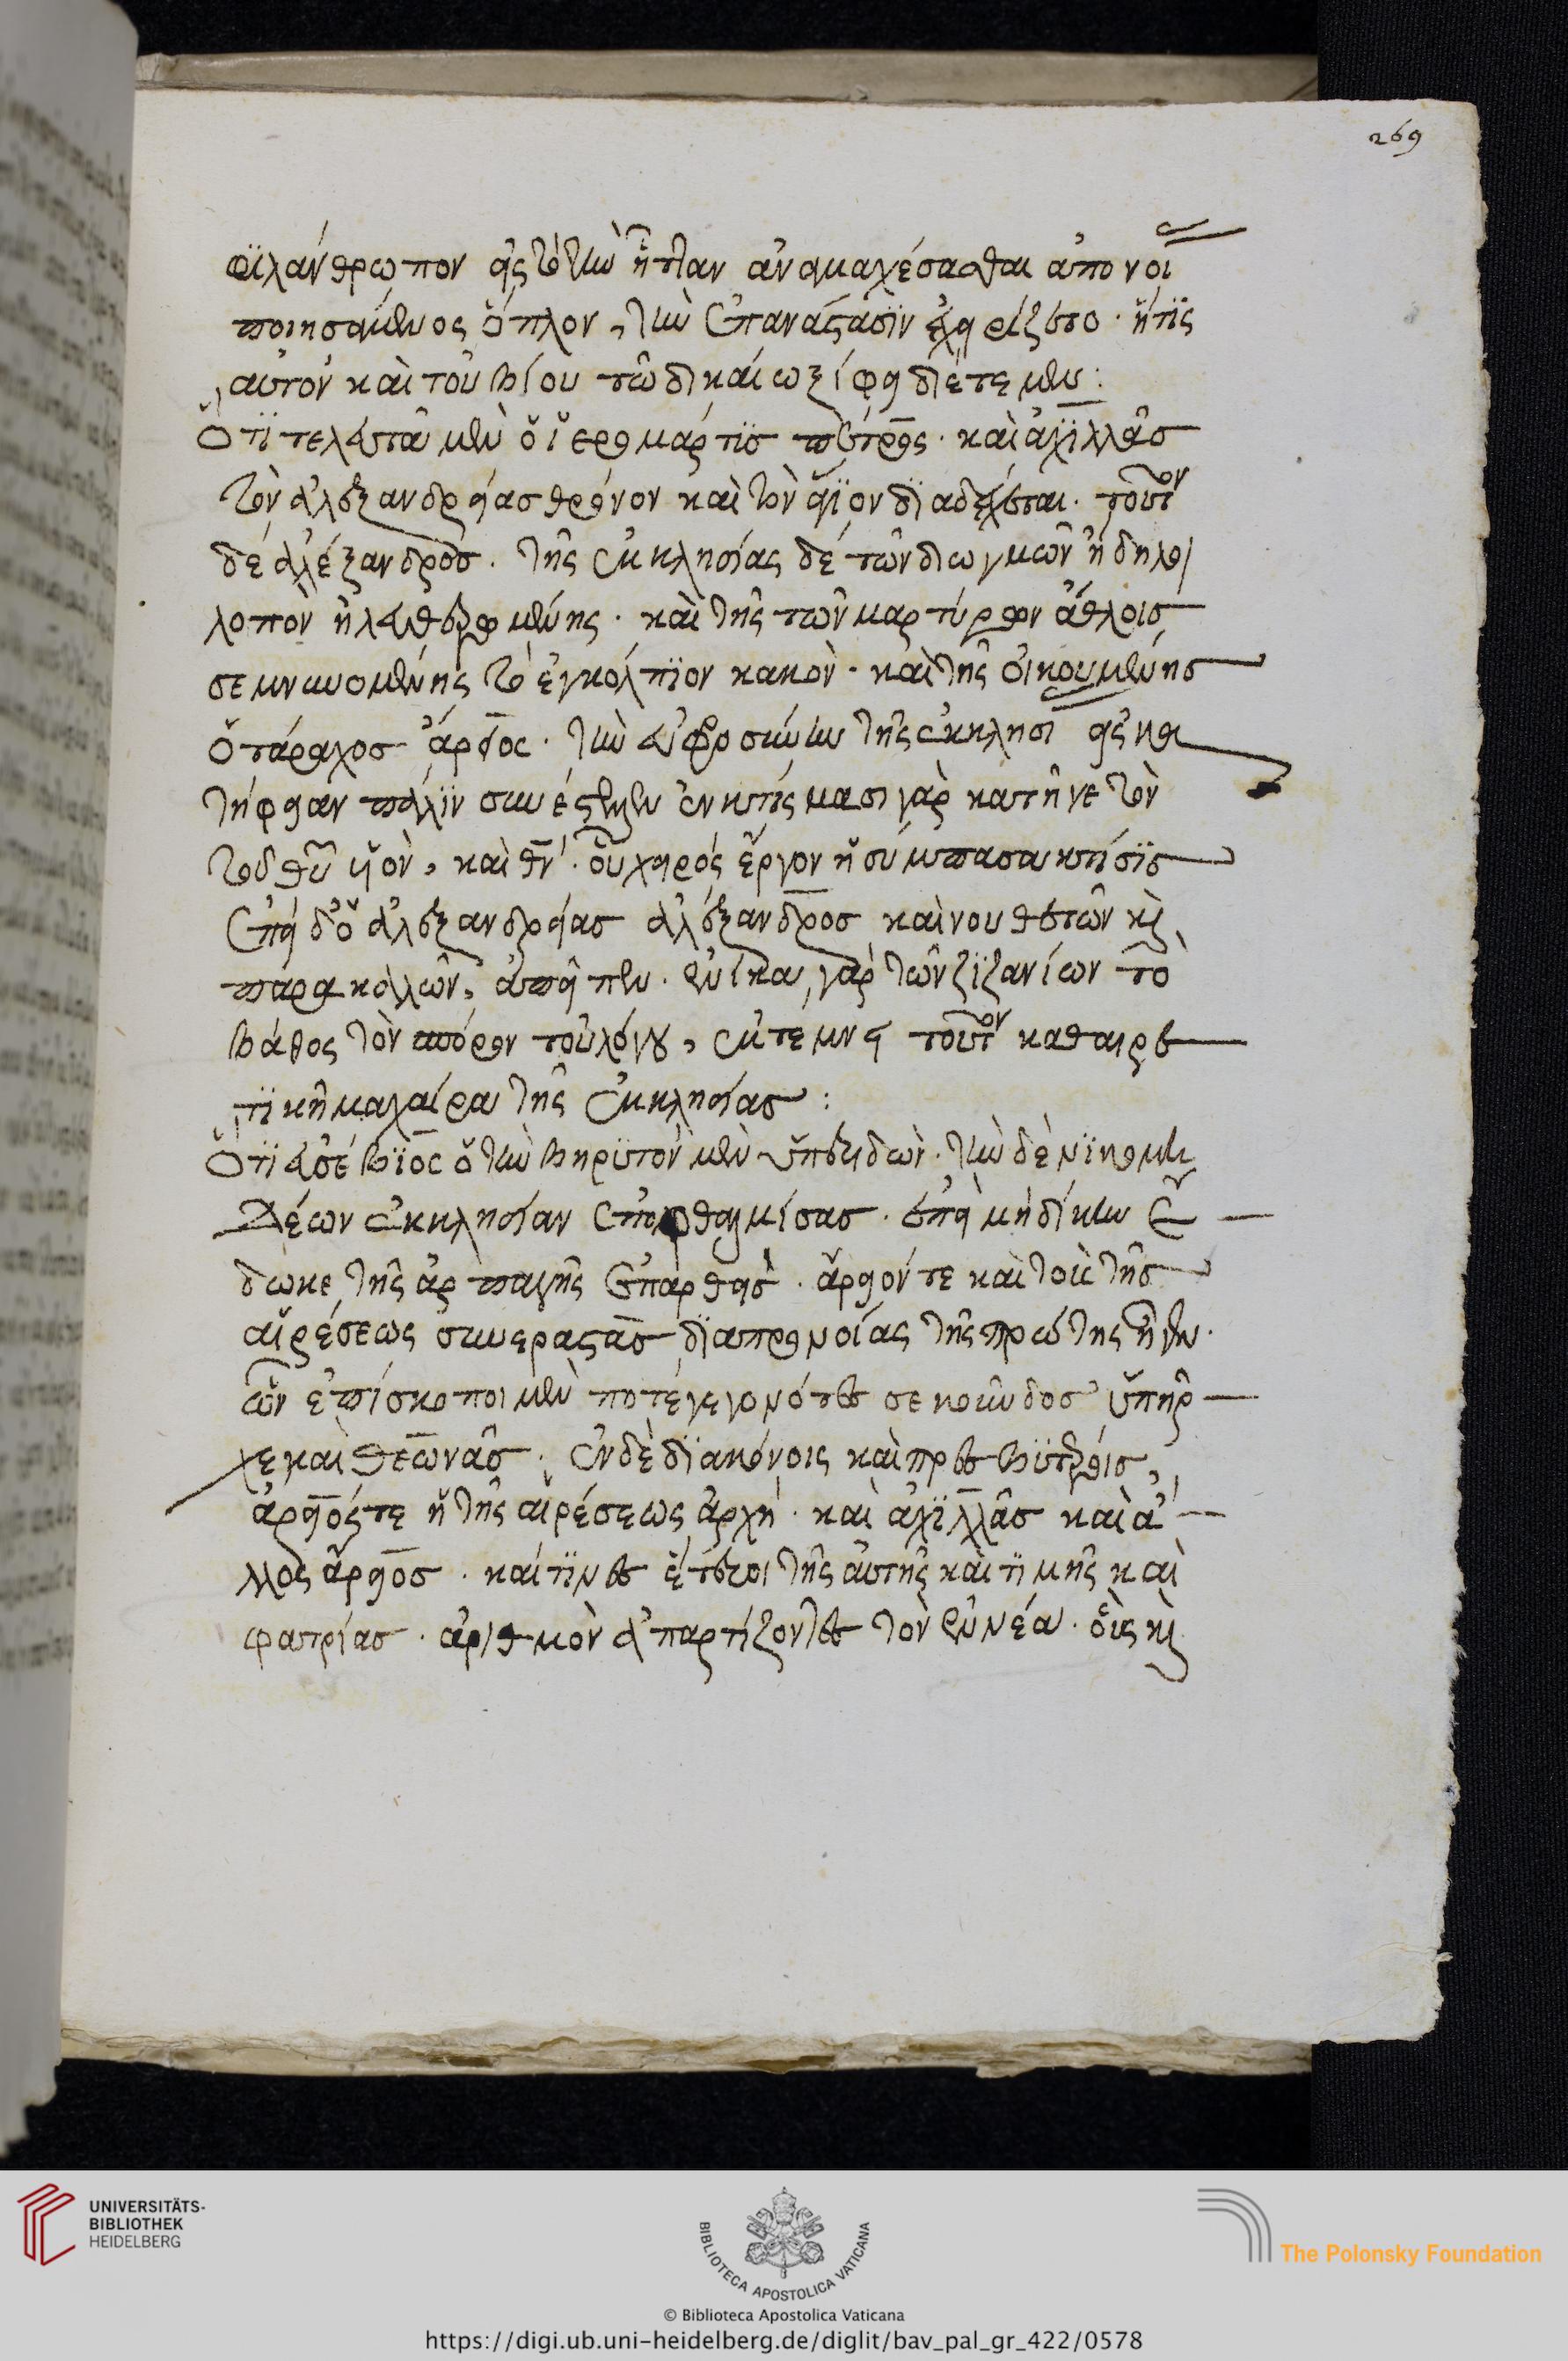 269
φϊλάνθρωπον εἰς τὸ τὴν ἧτταν ἀναμαχέσασθαι ἀπονοι
ποιησάμενος ὅπλον, τὴν ἐπανάστασϊν ἐχειρίζετο· ἥτϊς
αὐτὸν καὶ τοῦ βίου τῶ δικαίω ξίφει διέτεμεν:
Ὅτϊ τελευτᾶ μὲν ὁ ἱερομάρτϋς πέτρος· καὶ ἀχϊλλᾶς
τὸν ἀλεξανδρείας θρόνον καὶ τὸν διαδέχεται· τοῦτον
δὲ ἀλέξανδρος. τῆς ἐκκλησίας δὲ τῶν διωγμῶν ἤδη λοι
λοπὸν ἠλευθερωμένης· καὶ τῆς τῶν μαρτύρων ἄθλοις
σεμνυνομένης τὸ ἐγκόλπϊον κακὸν· καὶ τῆς οἰκουμένης
ὁ τάραχος ἄρειος· τὴν εὐφροσύνην τῆς ἐκκλησί εἰς κα
τήφειαν πάλϊν συνέστειλεν ἐν κτίσμασι γὰρ κατῆγε τὸν
τοῦ θῦ υἱὸν, καὶ θν· οὗ χειρὸς ἔργον ἡ σύμπασα κτίσϊς
ἐπεὶ δ' ὁ ἀλεξανδρείας ἀλέξανδρος καὶ νουθετῶν κὶ
παρακαλῶν, ἀπεῖπεν· γὰρ τῶν ζϊζανίων τὸ
βάθος τὸν σπόρον τοῦ λόγου, ἐκτέμνει τοῦτον καθαιρε
τϊκῆ μαχαίρα τῆς ἐκκλησίας:
Ὅτϊ εὐσέβϊος ὁ τὴν βηρϋτὸν μὲν ὑπεριδὼν· τὴν δὲ νϊκομη
δέων ἐκκλησίαν ἐποφθαλμίσας· ἐπεὶ μὴ δίκην ἔ
δωκε τῆς ἁρπαγῆς ἐπαρθεὶς· ἄρειόν τε καὶ τοὺς τῆς
αἱρέσεως συνεραστὰς διὰ προνοίας τῆς πρώτης ἦγεν·
ὧν ἐπίσκοποι μὲν ποτὲ γεγονότες σεκοῦνδος ὑπῆρ
χε καὶ θεωνᾶς· ἐν δὲ διακόνοις καὶ πρεσβϋτέροις,
ἄρειός τε ἡ τῆς αἱρέσεως ἀρχὴ· καὶ ἀχϊλλᾶς καὶ ἄ
λλος ἄρειος· καί τϊνες ἕτεροι τῆς αὐτῆς καὶ τϊμῆς καὶ
φατρίας· ἀριθμὸν ἀπαρτίζοντες τὸν ἐννέα· οἷς κὶ
UNIVERSITÄTS-
BIBLIOTHEK
HEIDELBERG
BIBLIOTECA APOSTOLICA VATICANA
The Polonsky Foundation
© Biblioteca Apostolica Vaticana
https://digi.ub.uni-heidelberg.de/diglit/bav_pal_gr_422/0578